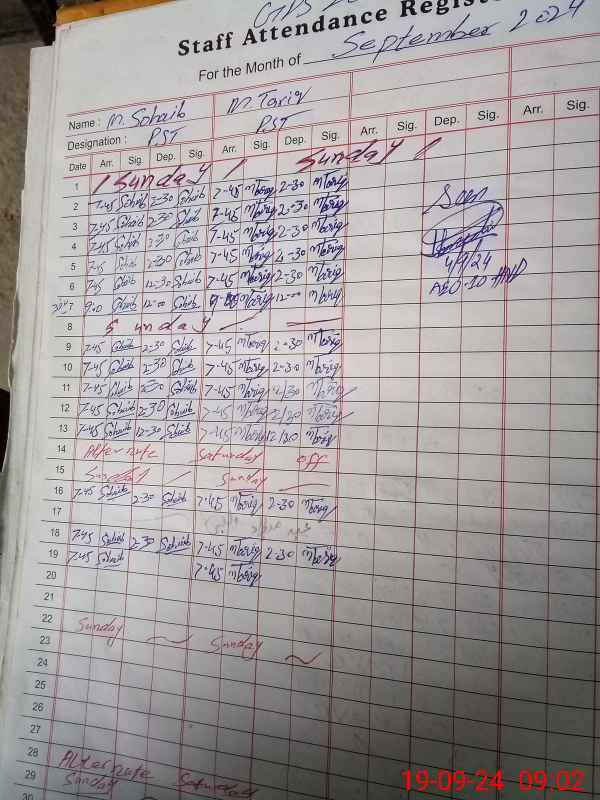 Staff Attendance Regist
For the Month of September 2024
Name : M. Sohaib M. Tariq
Designation : PST PST
Date Arr. Sig. Dep. Sig. Arr. Sig. Dep. Sig. Arr. Sig. Dep. Sig. Arr. Sig.
1 Sunday Sunday
2 7-45 Sohaib 2-30 Sohaib 7-45 mtariq 2-30 mtariq
3 7-45 Sohaib 2-30 Sohaib 7-45 mtariq 2-30 mtariq
4 7-45 Sohaib 2-30 Sohaib 7-45 mtariq 2-30 mtariq
5 7-45 Sohaib 2-30 Sohaib 7-45 mtariq 2-30 mtariq
6 7-45 Sohaib 12-30 Sohaib 7-45 mtariq 2-30 mtariq
7 9-00 Sohaib 12-00 Sohaib mtariq 12-00 mtariq
Seen
4/9/24
8 Sunday
9 7-45 Sohaib 2-30 Sohaib 7-45 mtariq 2-30 mtariq
10 7-45 Sohaib 2-30 Sohaib 7-45 mtariq 2-30 mtariq
11 7-45 Sohaib 2-30 Sohaib 7-45 mtariq 12/30 mtariq
12 7-45 Sohaib 2-30 Sohaib 7-45 mtariq 12/30 mtariq
13 7-45 Sohaib 12-30 Sohaib 7-45 mtariq 12/30 mtariq
14 Alternate Saturday off
15 Sunday Sunday
16 7-45 Sohaib 2-30 Sohaib 7-45 mtariq 2-30 mtariq
17
18 7-45 Sohaib 2-30 Sohaib 7-45 mtariq 2-30 mtariq
19 7-45 Sohaib 7-45 mtariq
20
21
22 Sunday Sunday
23
24
25
26
27
28 Alternate Saturday
29 Sunday
30
19-09-24 09:02